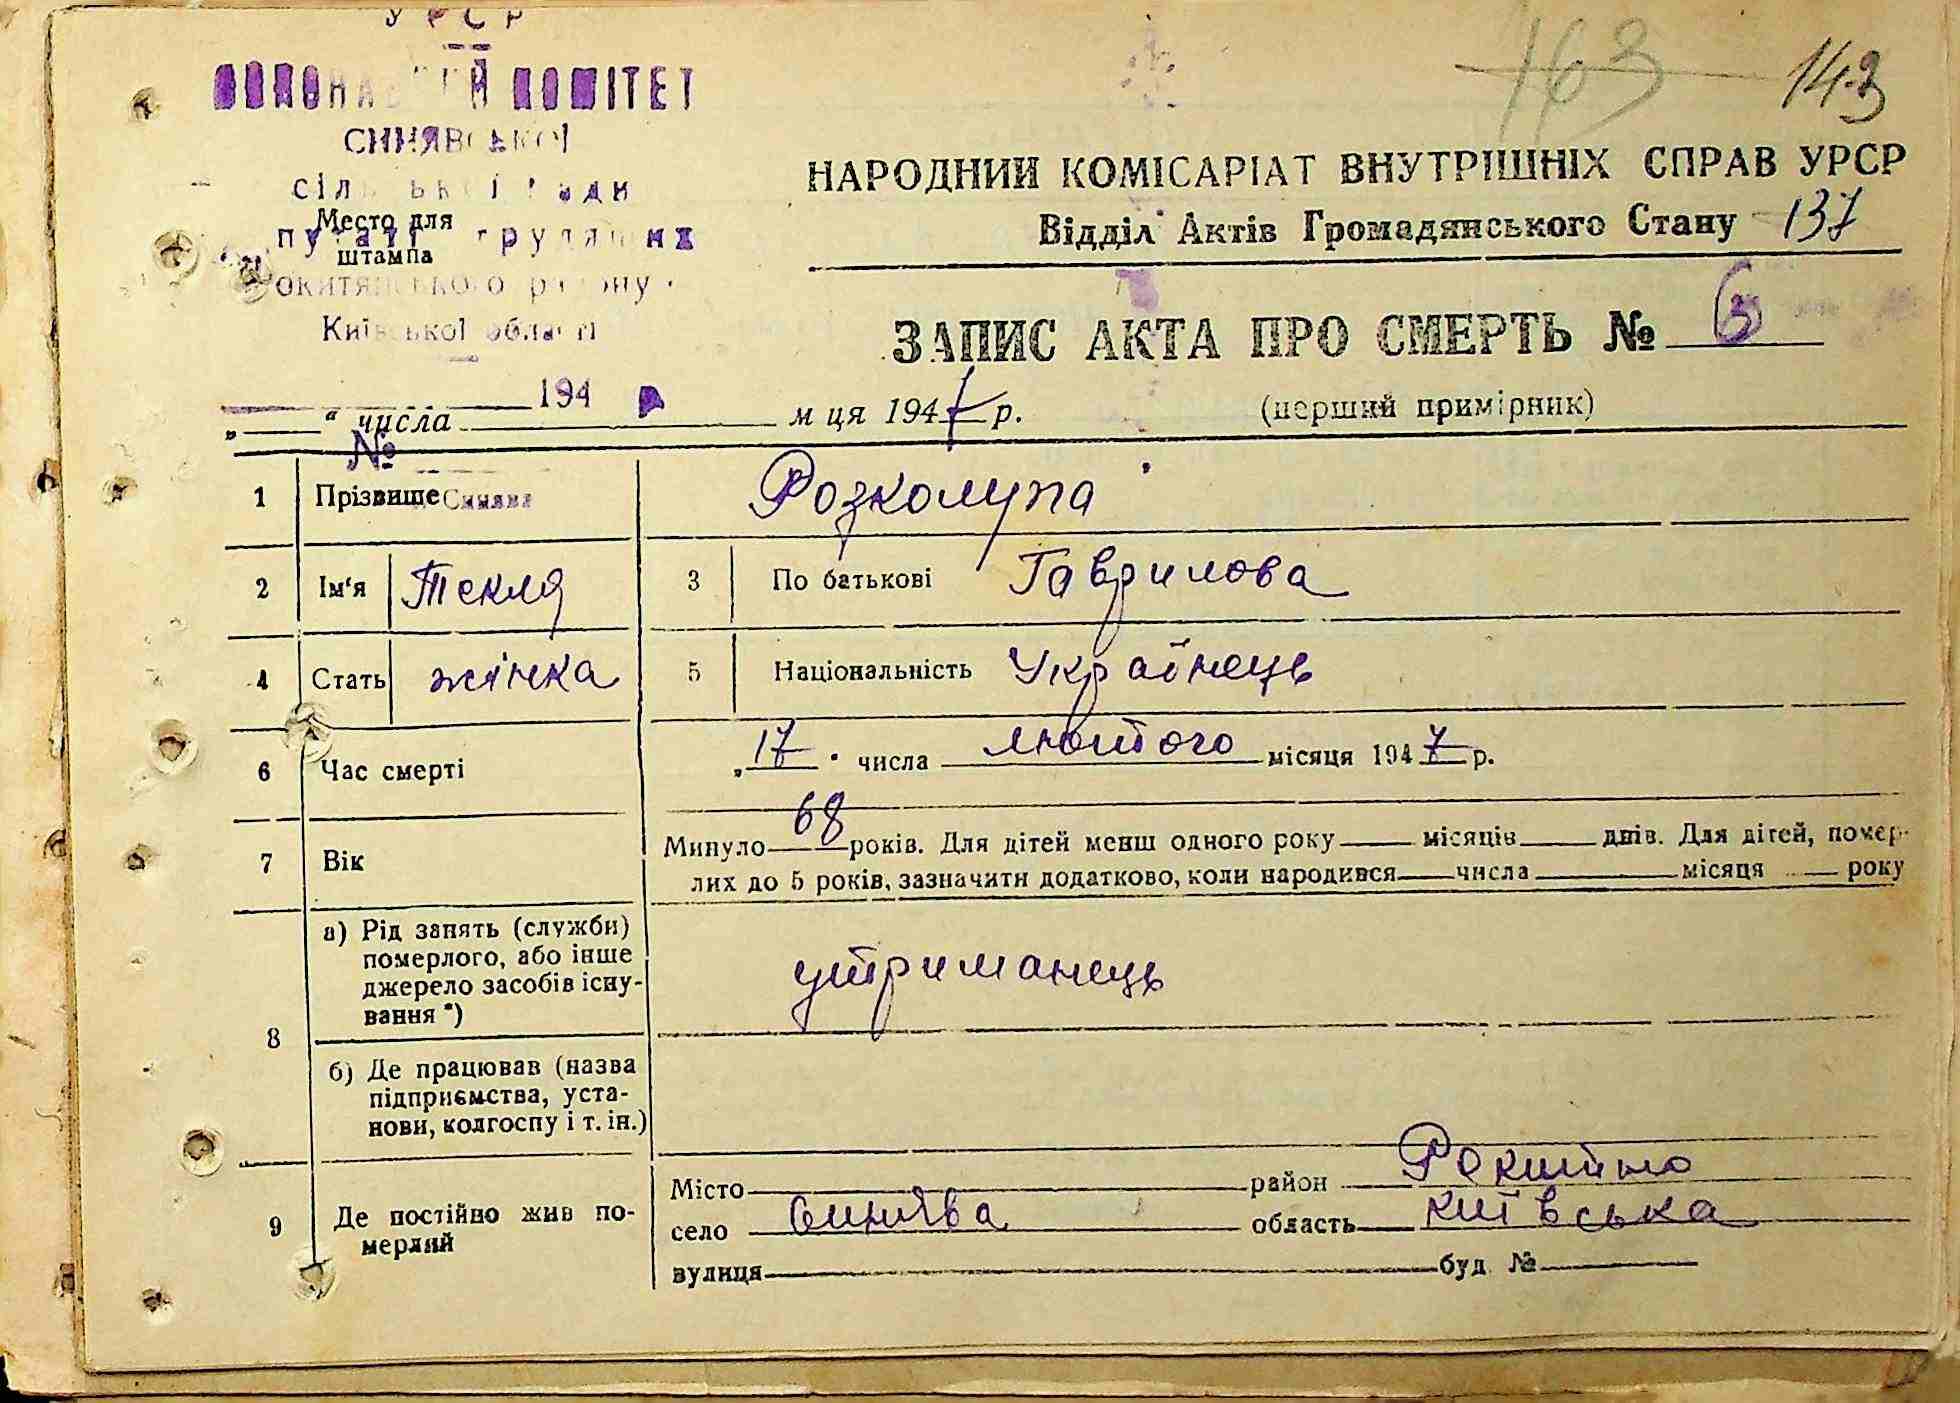 УРСР
ВИКОНАВЧИЙ КОМІТЕТ
СИНЯВСЬКОЇ
сільської ради
Место для
депутатів трудящих
штампа
Рокитянського району
Київської області
163 143
НАРОДНИЙ КОМІСАРІАТ ВНУТРІШНІХ СПРАВ УРСР
Відділ Актів Громадянського Стану 137
ЗАПИС АКТА ПРО СМЕРТЬ №
194
„ “ числа м ця 1947 р. (перший примірник)
№
1 Прізвище Розколупа
с. Синява
2 Ім'я Текля 3 По батькові Гаврилова
4 Стать жінка 5 Національність Українець
6 Час смерті „17" числа лютого місяця 1947 р.
7 Вік Минуло 68 років. Для дітей менш одного року місяців днів. Для дітей, помер-
лих до 5 років, зазначити додатково, коли народився числа місяця року
8 а) Рід занять (служби)
померлого, або інше
джерело засобів існу-
вання *)
утриманець
б) Де працював (назва
підприємства, уста-
нови, колгоспу і т. ін.)
9 Де постійно жив по-
мерлий
Місто район Рокитно
село Синява область київська
вулиця буд №